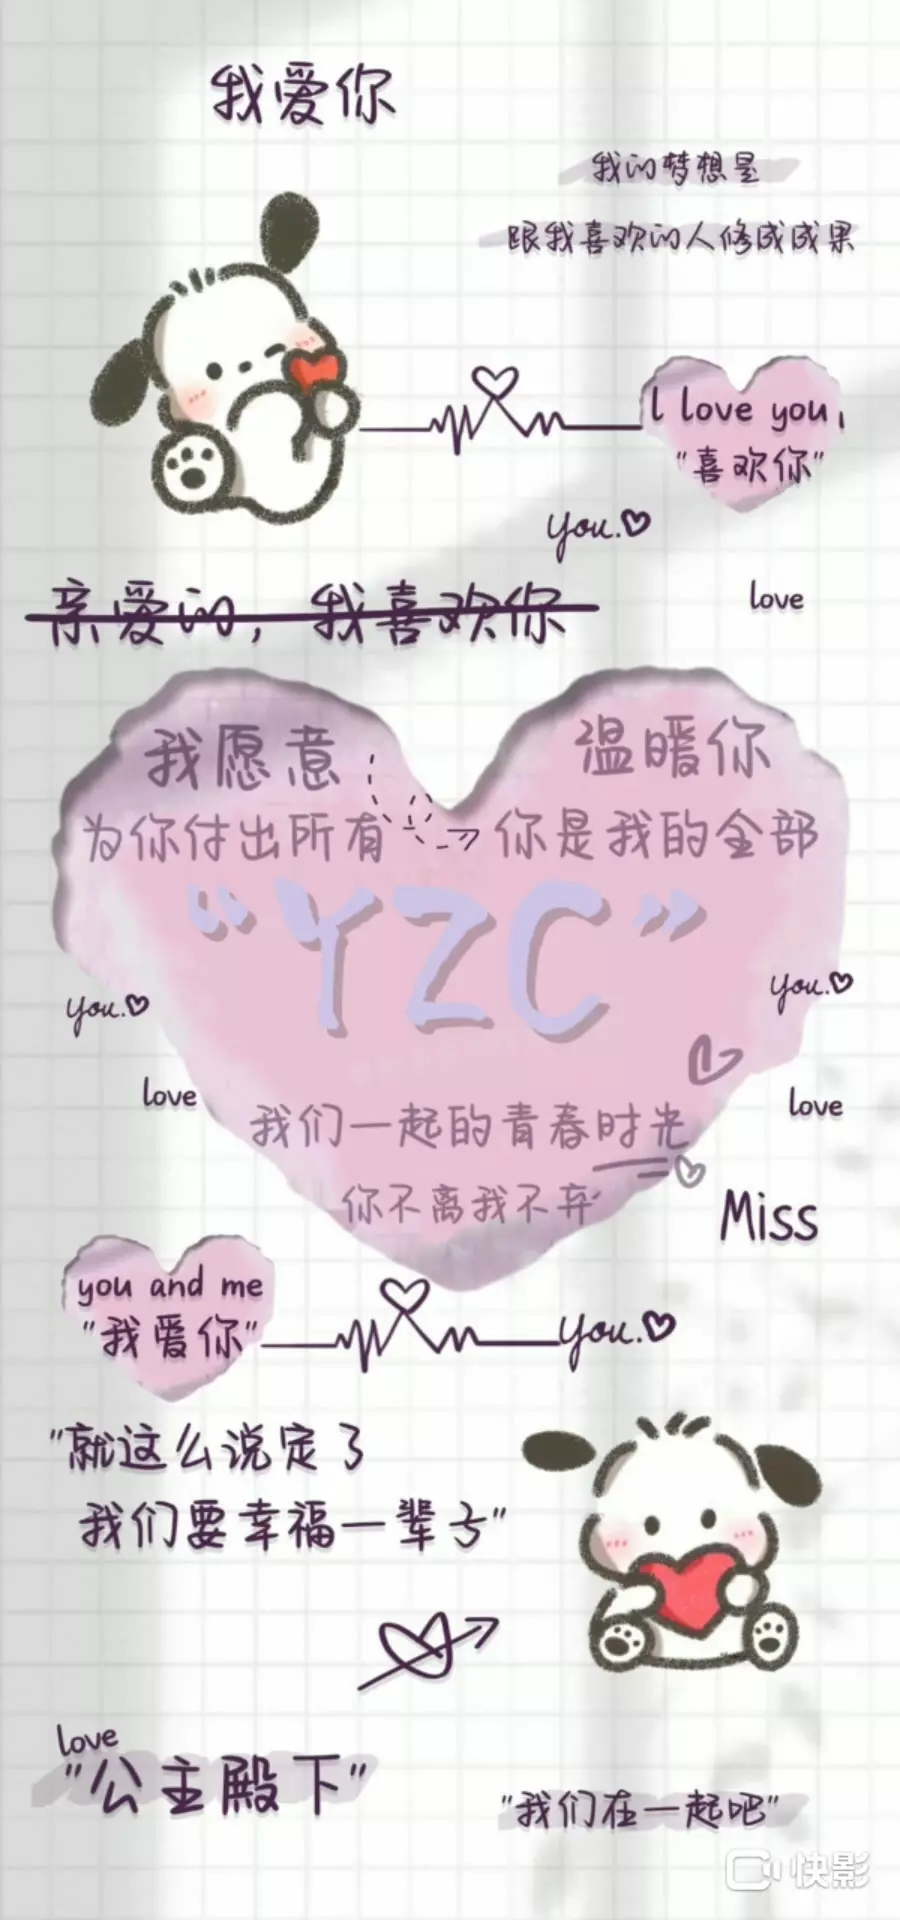 我爱你
我的梦想是
跟我喜欢的人修成成果
l love you,
"喜欢你"
you.
love
亲爱的，我喜欢你
我愿意
温暖你
为你付出所有
你是我的全部
"YZC"
you.
you.
love
love
我们一起的青春时光
你不离我不弃
Miss
you and me
"我爱你"
you.
"就这么说定了
我们要幸福一辈子"
love
"公主殿下"
"我们在一起吧"
快影